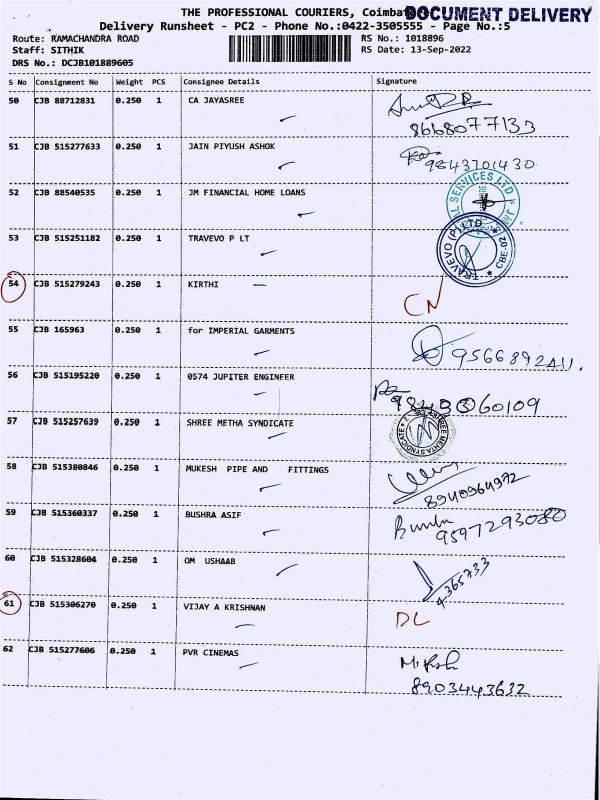 THE PROFESSIONAL COURIERS, Coimbat
DOCUMENT DELIVERY
Delivery Runsheet - PC2 - Phone No.:0422-3505555 - Page No.:5
Route: RAMACHANDRA ROAD RS No.: 1018896
Staff: SITHIK RS Date: 13-Sep-2022
DRS No.: DCJB101889605
S No Consignment No Weight PCS Consignee Details Signature
50 CJB 88712831 0.250 1 CA JAYASREE
8668077133
51 CJB 515277633 0.250 1 JAIN PIYUSH ASHOK
9843701430
52 CJB 88540535 0.250 1 JM FINANCIAL HOME LOANS
L SERVICES LTD
53 CJB 515251182 0.250 1 TRAVEVO P LT
TRAVEVO (P) LTD * CBE-02 *
54 CJB 515279243 0.250 1 KIRTHI
CN
55 CJB 165963 0.250 1 for IMPERIAL GARMENTS
56 CJB 515195220 0.250 1 0574 JUPITER ENGINEER
57 CJB 515257639 0.250 1 SHREE METHA SYNDICATE
SHREE MEHTA SYNDICATE
58 CJB 515380846 0.250 1 MUKESH PIPE AND FITTINGS
8940964972
59 CJB 515360337 0.250 1 BUSHRA ASIF
9597293080
60 CJB 515328604 0.250 1 OM USHAAB
4365733
61 CJB 515306270 0.250 1 VIJAY A KRISHNAN
DL
62 CJB 515277606 0.250 1 PVR CINEMAS
8903443632